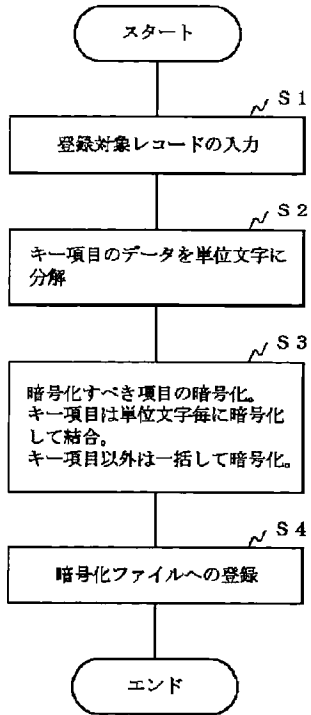 スタート
S1
登録対象レコードの入力
S2
キー項目のデータを単位文字に
分解
S3
暗号化すべき項目の暗号化。
キー項目は単位文字毎に暗号化
して結合。
キー項目以外は一括して暗号化。
S4
暗号化ファイルへの登録
エンド